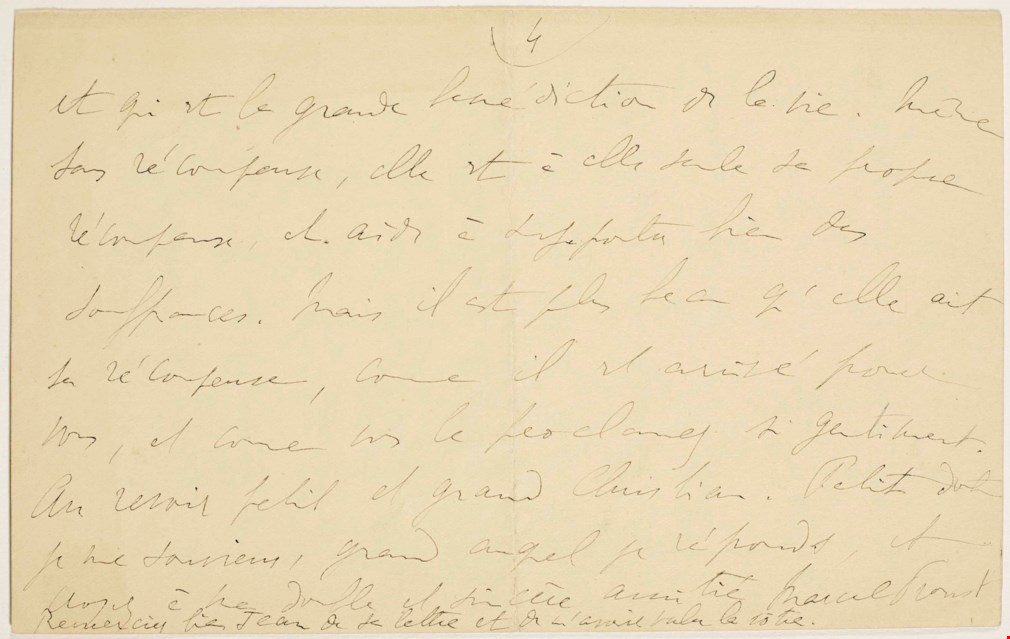 4
et qui est la grande bénédiction de la vie. Même
sans récompense, elle est à elle seule sa propre
récompense, et aide à supporter bien des
souffrances. Mais il est plus beau qu'elle ait
sa récompense, comme il est arrivé pour
vous, et comme vous le proclamez si gentiment.
Au revoir petit et grand Christian. Petit dont
je me souviens, grand auquel je réponds, et
croyez à ma double et sincère amitié Marcel Proust
Remerciez bien Jean de sa lettre et de m'avoir valu la vôtre.